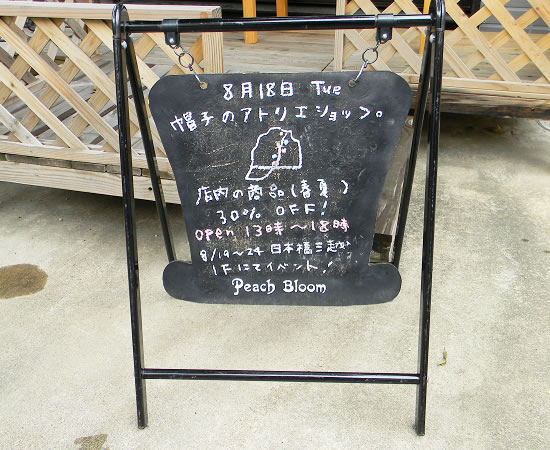 8月18日 Tue
帽子のアトリエショップ。
店内の商品(春夏)
30% OFF!
open 13時〜18時
8/19〜24 日本橋三越
1Fにてイベント!
Peach Bloom